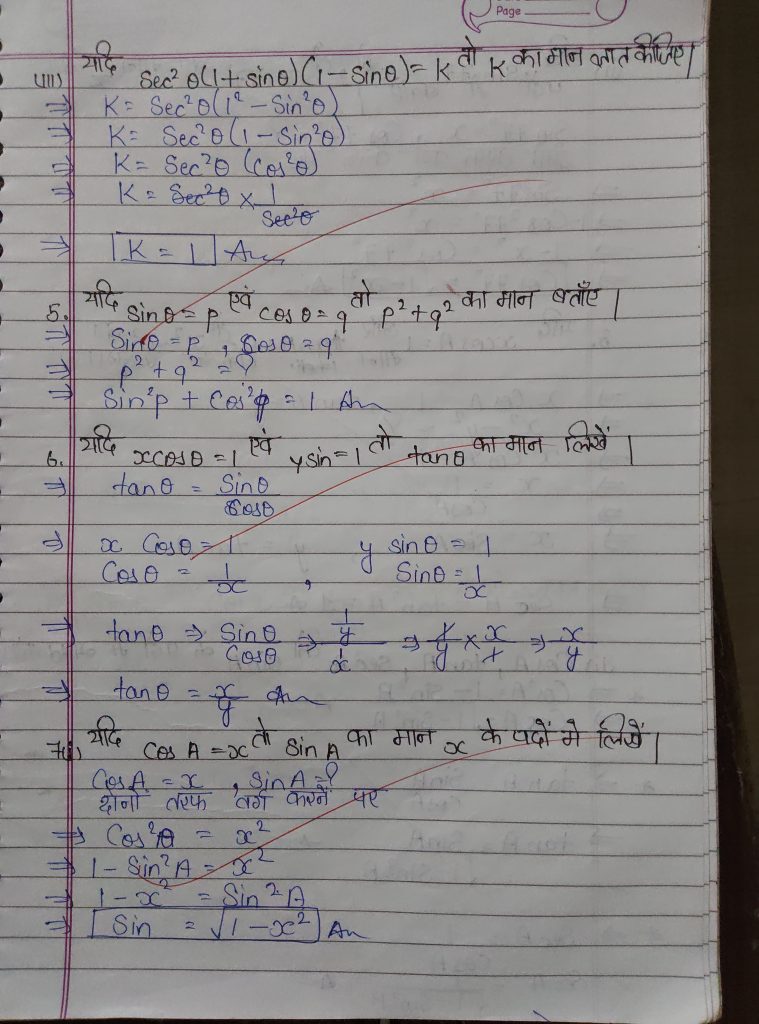 Page
viii) यदि Sec²θ(1+sinθ)(1-sinθ)=K तो K का मान ज्ञात कीजिए।
⇒ K = Sec²θ(1² - Sin²θ)
⇒ K = Sec²θ(1 - Sin²θ)
⇒ K = Sec²θ (Cos²θ)
⇒ K = Sec²θ × 1/Sec²θ
⇒ K = 1 Ans
5. यदि sinθ = p एवं cosθ = q तो p²+q² का मान बताएँ।
⇒ Sinθ = p , Cosθ = q
⇒ p² + q² = ?
⇒ Sin²p + Cos²φ = 1 Ans
6. यदि xcosθ = 1 एवं ysin = 1 तो tanθ का मान लिखें।
⇒ tanθ = Sinθ/Cosθ
⇒ x Cosθ = 1 y sinθ = 1
Cosθ = 1/x , Sinθ = 1/x
⇒ tanθ ⇒ Sinθ/Cosθ ⇒ (1/y)/(1/x) ⇒ 1/y × x/1 ⇒ x/y
⇒ tanθ = x/y Ans
यदि Cos A = x तो Sin A का मान x के पदों मे लिखें।
Cos A = x , Sin A = ?
दोनों तरफ वर्ग करने पर
⇒ Cos²θ = x²
⇒ 1 - Sin²A = x²
⇒ 1 - x² = Sin²A
⇒ Sin = √1-x² Ans